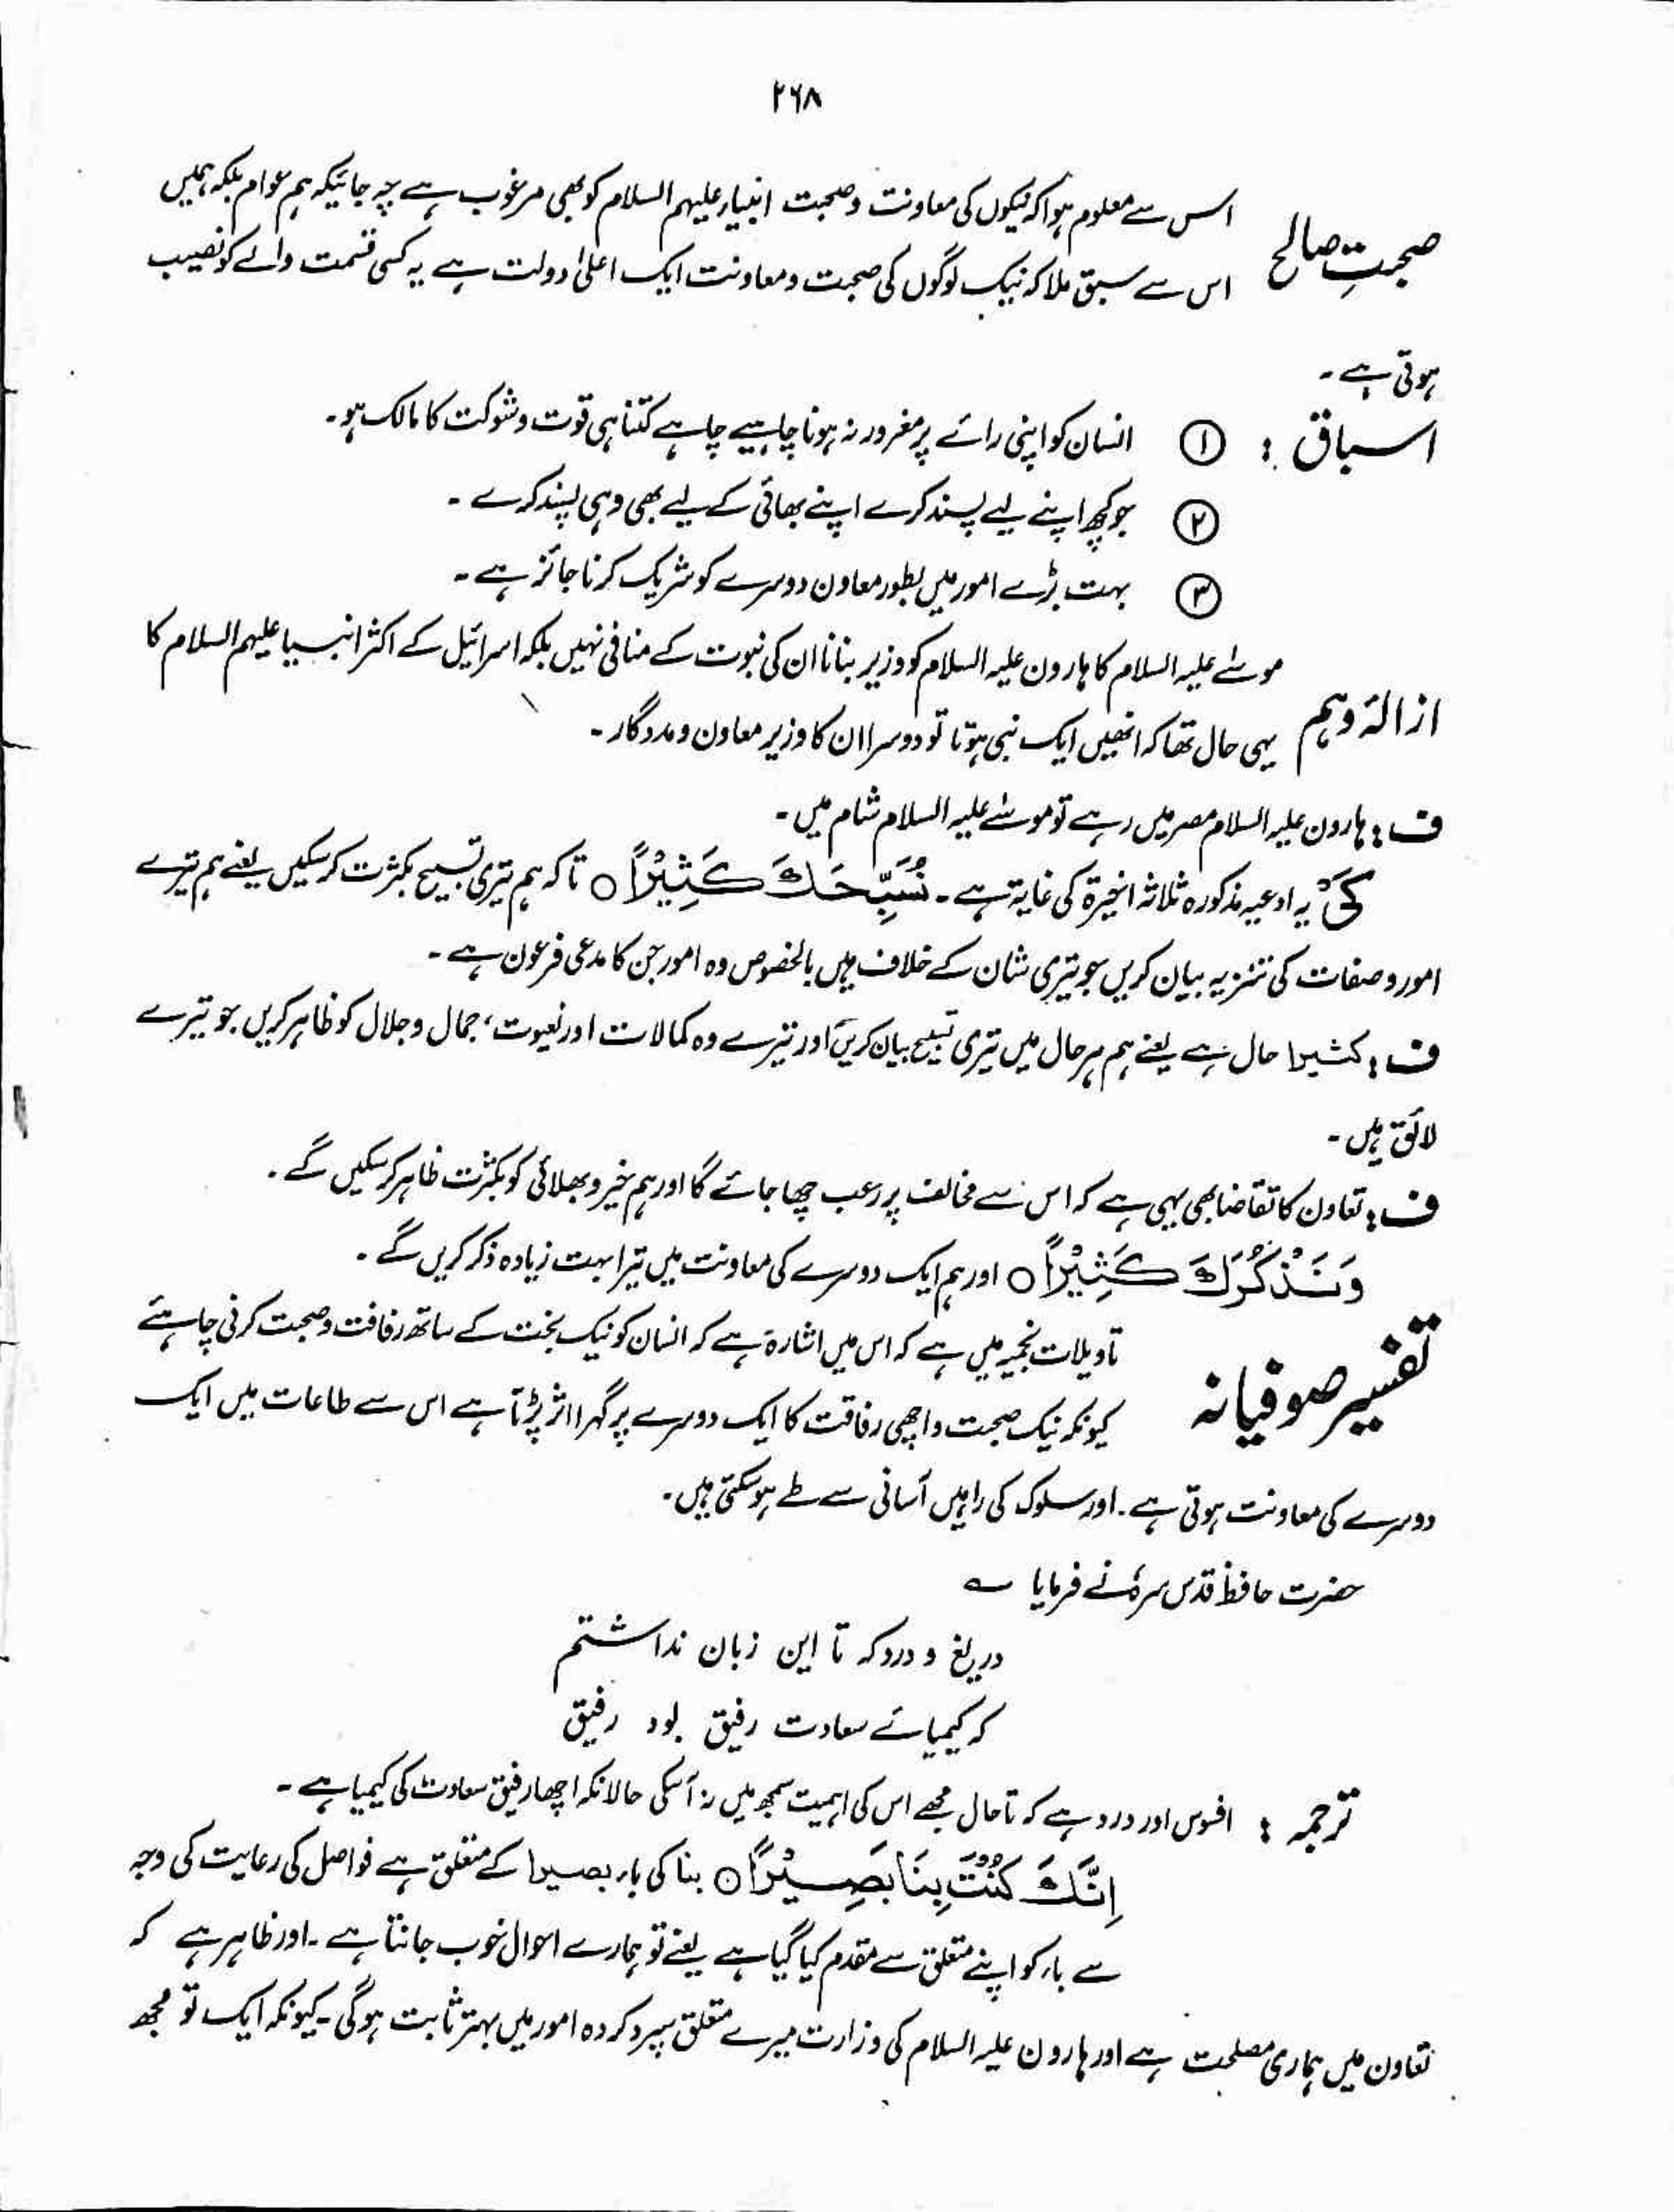 ۲۶۸
صحبتِ صالح
اس سے معلوم ہوا کہ نیکوں کی معاونت و صحبت انبیاء علیہم السلام کو بھی مرغوب ہے چہ جائیکہ ہم عوام بلکہ ہمیں
اس سے سبق ملا کہ نیک لوگوں کی صحبت و معاونت ایک اعلیٰ دولت ہے یہ کسی قسمت والے کو نصیب
ہوتی ہے ۔
اسباق : ① انسان کو اپنی رائے پر مغرور نہ ہونا چاہیے چاہے کتنا ہی قوت و شوکت کا مالک ہو۔
② جو کچھ اپنے لیے پسند کرے اپنے بھائی کے لیے بھی وہی پسند کرے ۔
③ بہت بڑے امور میں بطور معاون دوسرے کو شریک کرنا جائز ہے ۔
ازالۂ وہم
موسٰے علیہ السلام کا ہارون علیہ السلام کو وزیر بنانا ان کی نبوت کے منافی نہیں بلکہ اسرائیل کے اکثر انبیا علیہم السلام کا
یہی حال تھا کہ انھیں ایک نبی ہوتا تو دوسرا ان کا وزیر معاون و مددگار ۔
ف : ہارون علیہ السلام مصر میں رہے تو موسٰے علیہ السلام شام میں ۔
کَیْ یہ ادعیہ مذکورہ ثلاثہ اخیرۃ کی غایۃ ہے ۔ نُسَبِّحَكَ كَثِيْرًا ○ تاکہ ہم تیری تسبیح بکثرت کرسکیں یعنے ہم تیرے
امور و صفات کی تنزیہ بیان کریں جو تیری شان کے خلاف ہیں بالخصوص وہ امور جن کا مدعی فرعون ہے ۔
ف : کثیرا حال ہے یعنے ہم ہر حال میں تیری تسبیح بیان کریں اور تیرے وہ کمالات اور نعیوت، جمال و جلال کو ظاہر کریں جو تیرے
لائق ہیں ۔
ف : تعاون کا تقاضا بھی یہی ہے کہ اس سے مخالف پر رعب چھا جائے گا اور ہم خیر و بھلائی کو بکثرت ظاہر کرسکیں گے ۔
وَنَذْكُرَكَ كَثِيْرًا ○ اور ہم ایک دوسرے کی معاونت میں تیرا بہت زیادہ ذکر کریں گے ۔
تفسیر صوفیانہ
تاویلات نجمیہ میں ہے کہ اس میں اشارۃ ہے کہ انسان کو نیک بخت کے ساتھ رفاقت و صحبت کرنی چاہئے
کیونکہ نیک صحبت و اچھی رفاقت کا ایک دوسرے پر گہرا اثر پڑتا ہے اس سے طاعات میں ایک
دوسرے کی معاونت ہوتی ہے ۔ اور سلوک کی راہیں آسانی سے طے ہوسکتی ہیں ۔
حضرت حافظ قدس سرہٗ نے فرمایا ؎
دریغ و درد کہ تا این زبان نداشتم
کہ کیمیائے سعادت رفیق بود رفیق
ترجمہ : افسوس اور درد ہے کہ تاحال مجھے اس کی اہمیت سمجھ میں نہ آسکی حالانکہ اچھا رفیق سعادت کی کیمیا ہے ۔
اِنَّكَ كُنْتَ بِنَا بَصِيْرًا ○ بنا کی باء بصیرا کے متعلق ہے فواصل کی رعایت کی وجہ
سے باء کو اپنے متعلق سے مقدم کیا گیا ہے یعنے تو ہمارے احوال خوب جانتا ہے ۔ اور ظاہر ہے کہ
تعاون میں ہماری مصلحت ہے اور ہارون علیہ السلام کی وزارت میرے متعلق سپرد کردہ امور میں بہتر ثابت ہوگی ۔ کیونکہ ایک تو مجھ